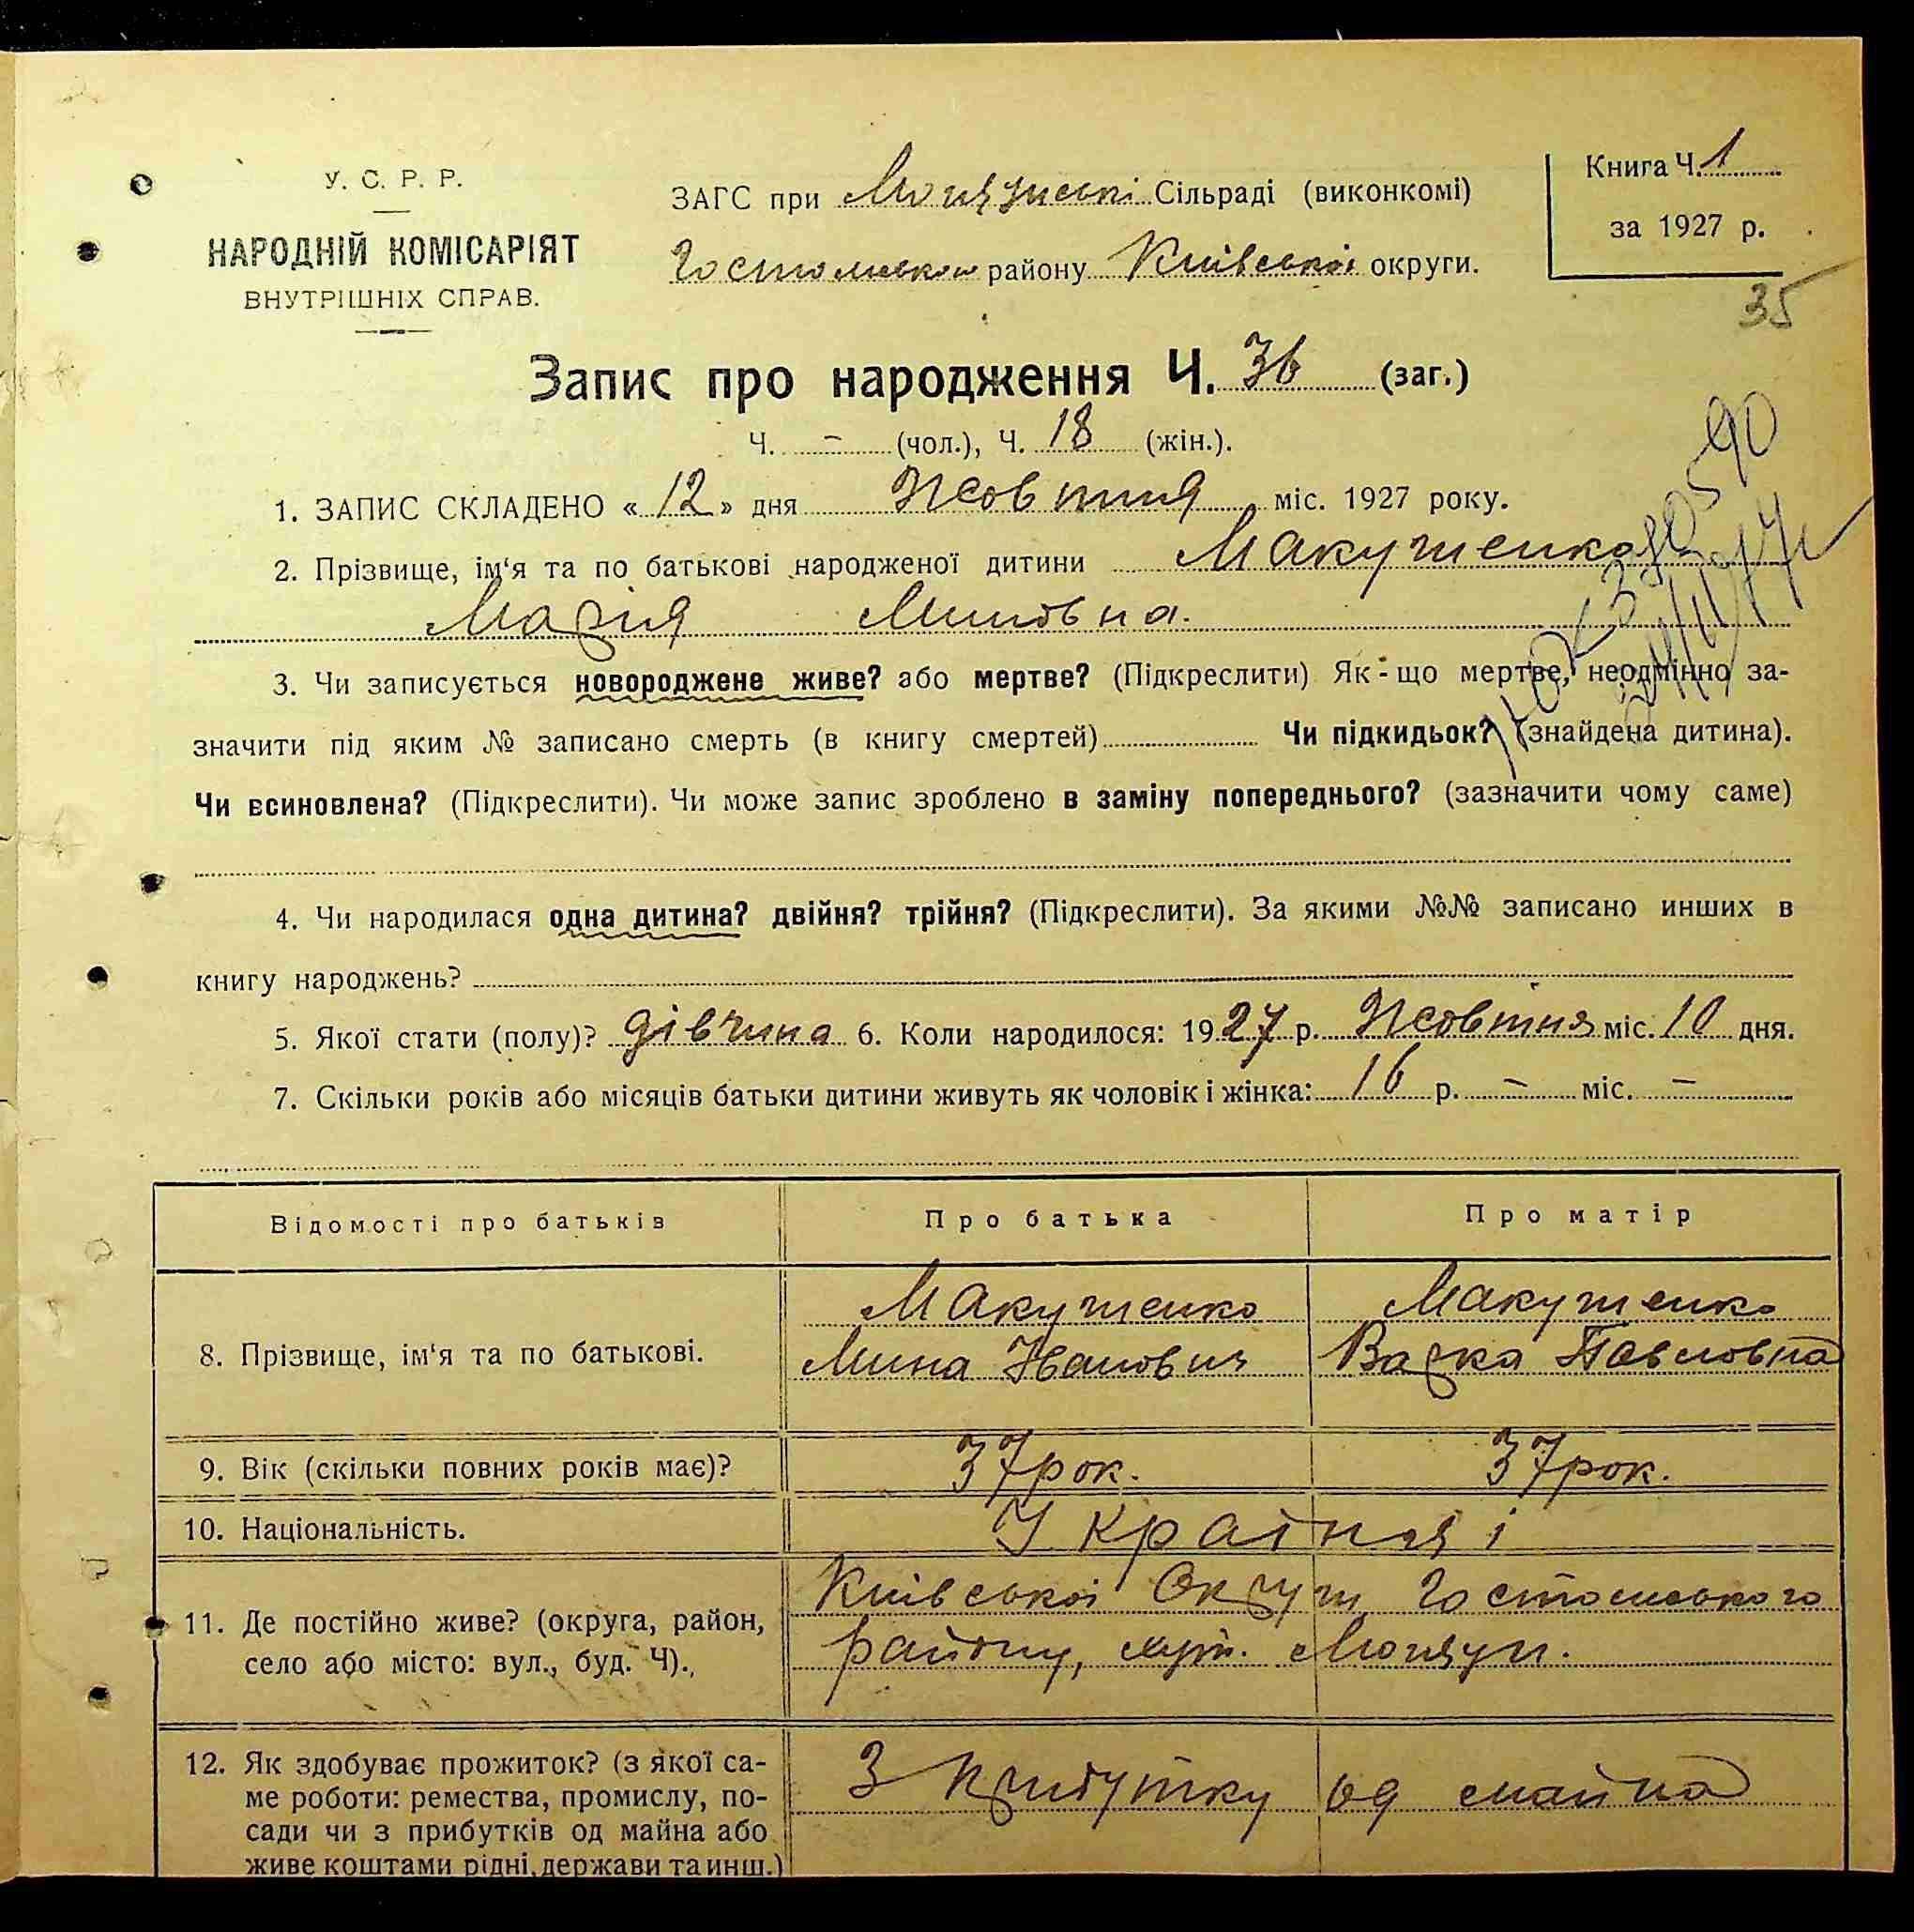 У. С. Р. Р.
НАРОДНІЙ КОМІСАРІЯТ
ВНУТРІШНІХ СПРАВ.
ЗАГС при Мощунські Сільраді (виконкомі)
Гостомськом району Київської округи.
Книга Ч. 1
за 1927 р.
35
Запис про народження Ч. 36 (заг.)
Ч. – (чол.), Ч. 18 (жін.).
1. ЗАПИС СКЛАДЕНО « 12 » дня Жовтня міс. 1927 року.
2. Прізвище, ім‘я та по батькові народженої дитини Макушенко
Марія Миновна.
3. Чи записується новороджене живе? або мертве? (Підкреслити) Як-що мертве, неодмінно за-
значити під яким № записано смерть (в книгу смертей) Чи підкидьок? (знайдена дитина).
Чи всиновлена? (Підкреслити). Чи може запис зроблено в заміну попереднього? (зазначити чому саме)
4. Чи народилася одна дитина? двійня? трійня? (Підкреслити). За якими №№ записано инших в
книгу народжень?
5. Якої стати (полу)? дівчина 6. Коли народилося: 1927 р. Жовтня міс. 10 дня.
7. Скільки років або місяців батьки дитини живуть як чоловік і жінка: 16 р. – міс. –
Відомості про батьків Про батька Про матір
8. Прізвище, ім‘я та по батькові. Макушенко Мина Іванович Макушенко Варка Павловна
9. Вік (скільки повних років має)? 37 рок. 37 рок.
10. Національність. Українці
11. Де постійно живе? (округа, район, Київської Округи Гостомського
село або місто: вул., буд. Ч)., району, хут. Мощун.
12. Як здобуває прожиток? (з якої са- З прибутку од майна
ме роботи: ремества, промислу, по-
сади чи з прибутків од майна або
живе коштами рідні, держави та инш.)